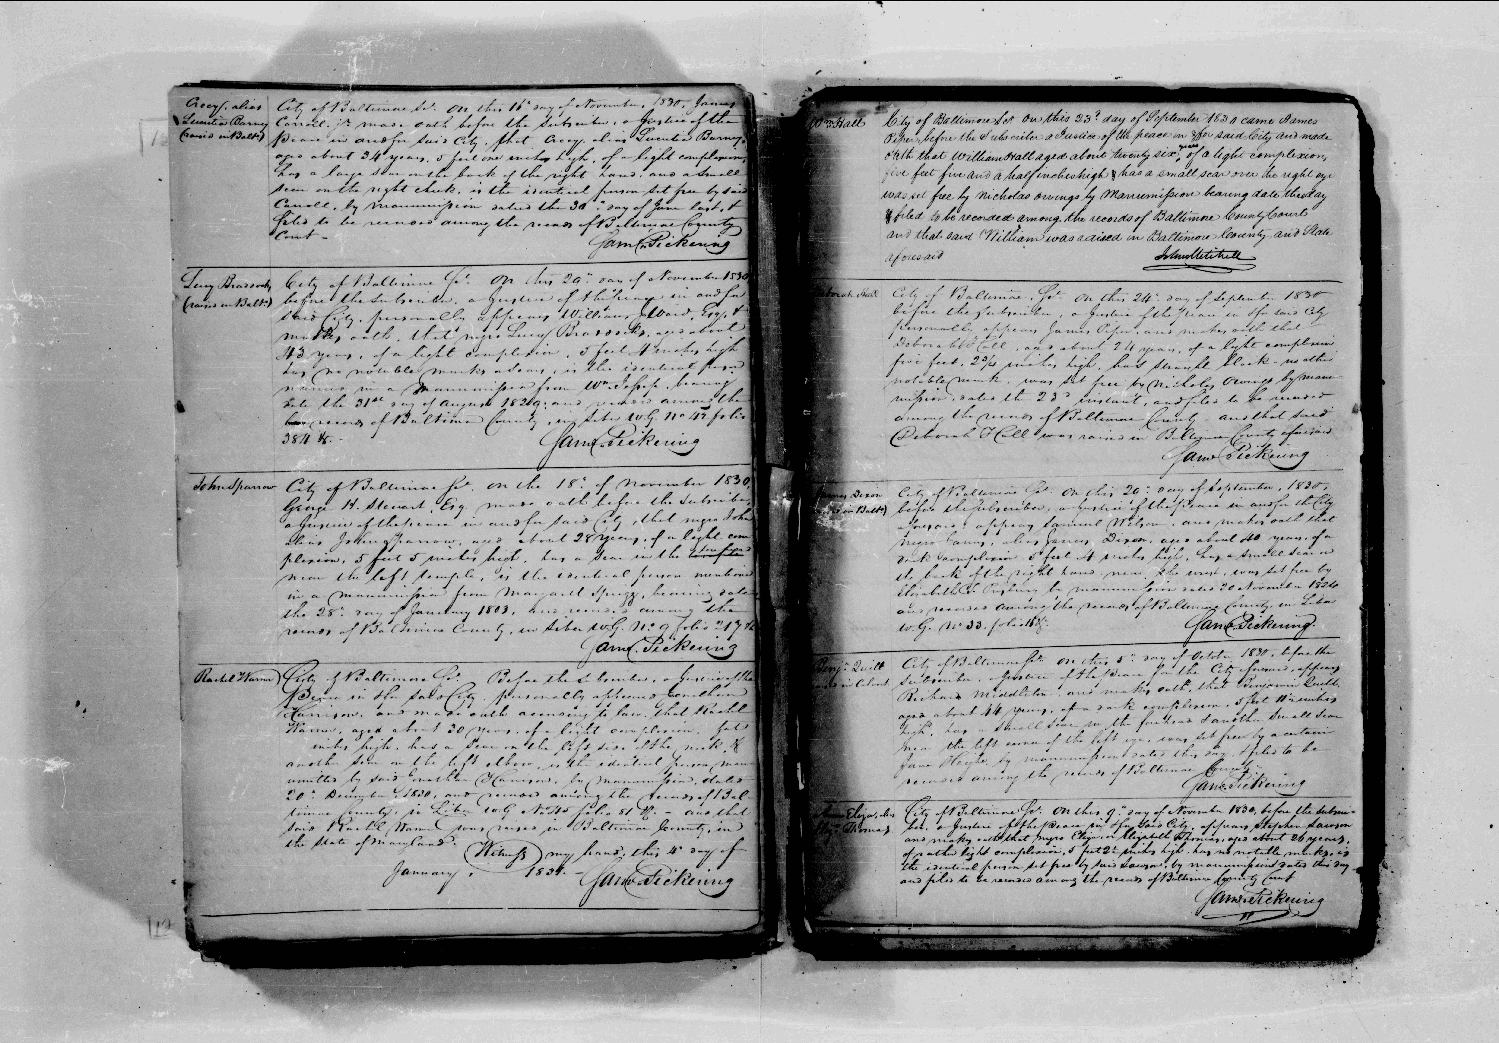 alias
Lucretia Barney
(raised in Balto)
City of Baltimore Sct. On this 16th day of November, 1830, James
Carroll Jr. made oath before the subscriber, a Justice of the
Peace in and for said City, that alias Lucretia Barney,
aged about 34 years, 5 feet one inches high, of a light complexion,
has a large scar on the back of the right hand, and a small
scar on the right cheek, is the identical person set free by said
Carroll, by manumission dated the 30th day of June last, &
filed to be recorded among the records of Baltimore County
Court.
James Pickering
Lucy
(raised in Balto)
City of Baltimore Sct. On this 29th day of November 1830
before the subscriber, a Justice of the Peace in and for
said City, personally appears William J. Ward, Esq. &
makes oath, that negro Lucy aged about
43 years, of a light complexion, 5 feet 4 inches high
has no notable marks or scars, is the identical person
named in a manumission from Wm. Jessop, bearing
date the 31st day of August 1829, and recorded among the
records of Baltimore County, in Liber W.G. No. 45 folio
384 &c.
James Pickering
John Sparrow
City of Baltimore Sct. On the 18th of November 1830,
George H. Steuart, Esq. made oath before the subscriber,
a Justice of the peace in and for said City, that negro John
alias John Sparrow, aged about 28 years, of a light com
plexion, 5 feet 5 inches high, has a scar in the
near the left temple, is the identical person mentioned
in a manumission from Margaret Sprigg, bearing date
the 28th day of January 1803, and recorded among the
records of Baltimore County, in Liber W.G. No. 9 folio 217 &c
James Pickering
Rachel Warner
City of Baltimore Sct. Before the subscriber, a Justice of the
Peace in & for said City personally appeared Jonathan
Harrison, and made oath according to law, that Rachel
Warner, aged about 30 years, of a light complexion, feet
inches high, has a scar on the left side of the neck, &
another scar on the left elbow, is the identical person manu
mitted by said Jonathan Harrison, by manumission, dated
20th December, 1830, and recorded among the records of Bal
timore County, in Liber W.G. No. 45 folio 51 &c. and that
said Rachel Warner was raised in Baltimore County, in
the State of Maryland.
Witness my hand, this 4th day of
January, 1831.
James Pickering
Wm Hall
City of Baltimore Sct On this 23d day of September 1830 came James
Piper, before the Subscriber a Justice of the peace in & for said City and made
oath that William Hall aged about twenty six years, of a light complexion,
five feet five and a half inches high & has a small scar over the right eye
was set free by Nicholas Owings by Manumission bearing date this day
& filed to be recorded among the records of Baltimore County Court
and that said William was raised in Baltimore County and State
aforesaid
John Mitchell
Deborah Hall
City of Baltimore, Sct. On this 24th day of September 1830
before the Subscriber, a Justice of the Peace in & for said City
personally appears James Piper, and makes oath that
Deborah Hall, aged about 24 years, of a light complexion
five feet, 2 3/4 inches high, has straight black no other
notable mark, was set free by Nicholas Owings by manu
mission, dated the 23d instant, and filed to be recorded
among the records of Baltimore County and that said
Deborah Hall was raised in Baltimore County aforesaid
James Pickering
James Dixon
(raised in Balto)
City of Baltimore Sct. On this 20th day of September, 1830,
before the subscriber, a Justice of the Peace in and for the City
aforesaid appears Samuel Wilson, and makes oath that
negro James, alias James Dixon, aged about 40 years, of a
dark complexion 5 feet 4 inches high, has a small scar on
the back of the right hand, near the wrist, was set free by
Elizabeth by manumission dated 30 November 1824
and recorded among the records of Baltimore County, in Liber
W.G. No. 33, folio
James Pickering
Benjn Quill
City of Baltimore Sct. On this 5th day of October 1830, before the
subscriber, a Justice of the Peace for the City aforesaid, appears
Richard Middleton, and makes oath, that Benjamin Quill,
aged about 44 years, of a dark complexion, 5 feet inches
high, has a small scar in the forehead & another small scar
near the left corner of the left eye, was set free by a certain
Jane by manumission dated this day & filed to be
recorded among the records of Baltimore County
James Pickering
Eliza, alias
Thomas
City of Baltimore Sct. On this 9th day of November 1830, before the subscri-
ber, a Justice of the Peace in & for said City, appears Stephen Lawson
and makes oath that negro Eliza or Elizabeth Thomas, aged about 26 years,
of rather light complexion, 5 feet 2 1/2 inches high, has no notable marks, is
the identical person set free by said Lawson, by manumission dated this day
and filed to be recorded among the records of Baltimore County Court
James Pickering